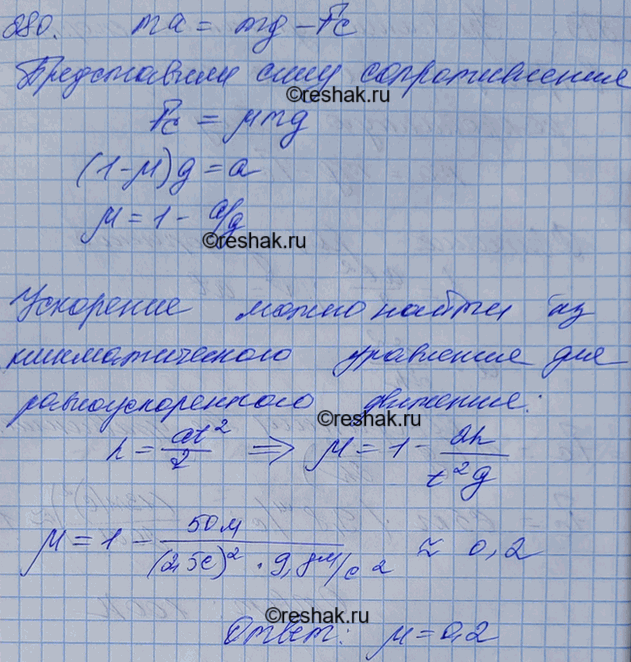 280. ma = mg - Fc
Представим силу сопротивления
©reshak.ru
Fc = μmg
(1-μ)g = a
μ = 1 - a/g
©reshak.ru
Ускорение можно найти из
кинематического уравнения для
равноускоренного движения:
©reshak.ru
h = at²/2 ⟹ μ = 1 - 2h/t²g
μ = 1 - 50м/(2,5с)² · 9,8м/с² ≈ 0,2
©reshak.ru
Ответ: μ = 0,2